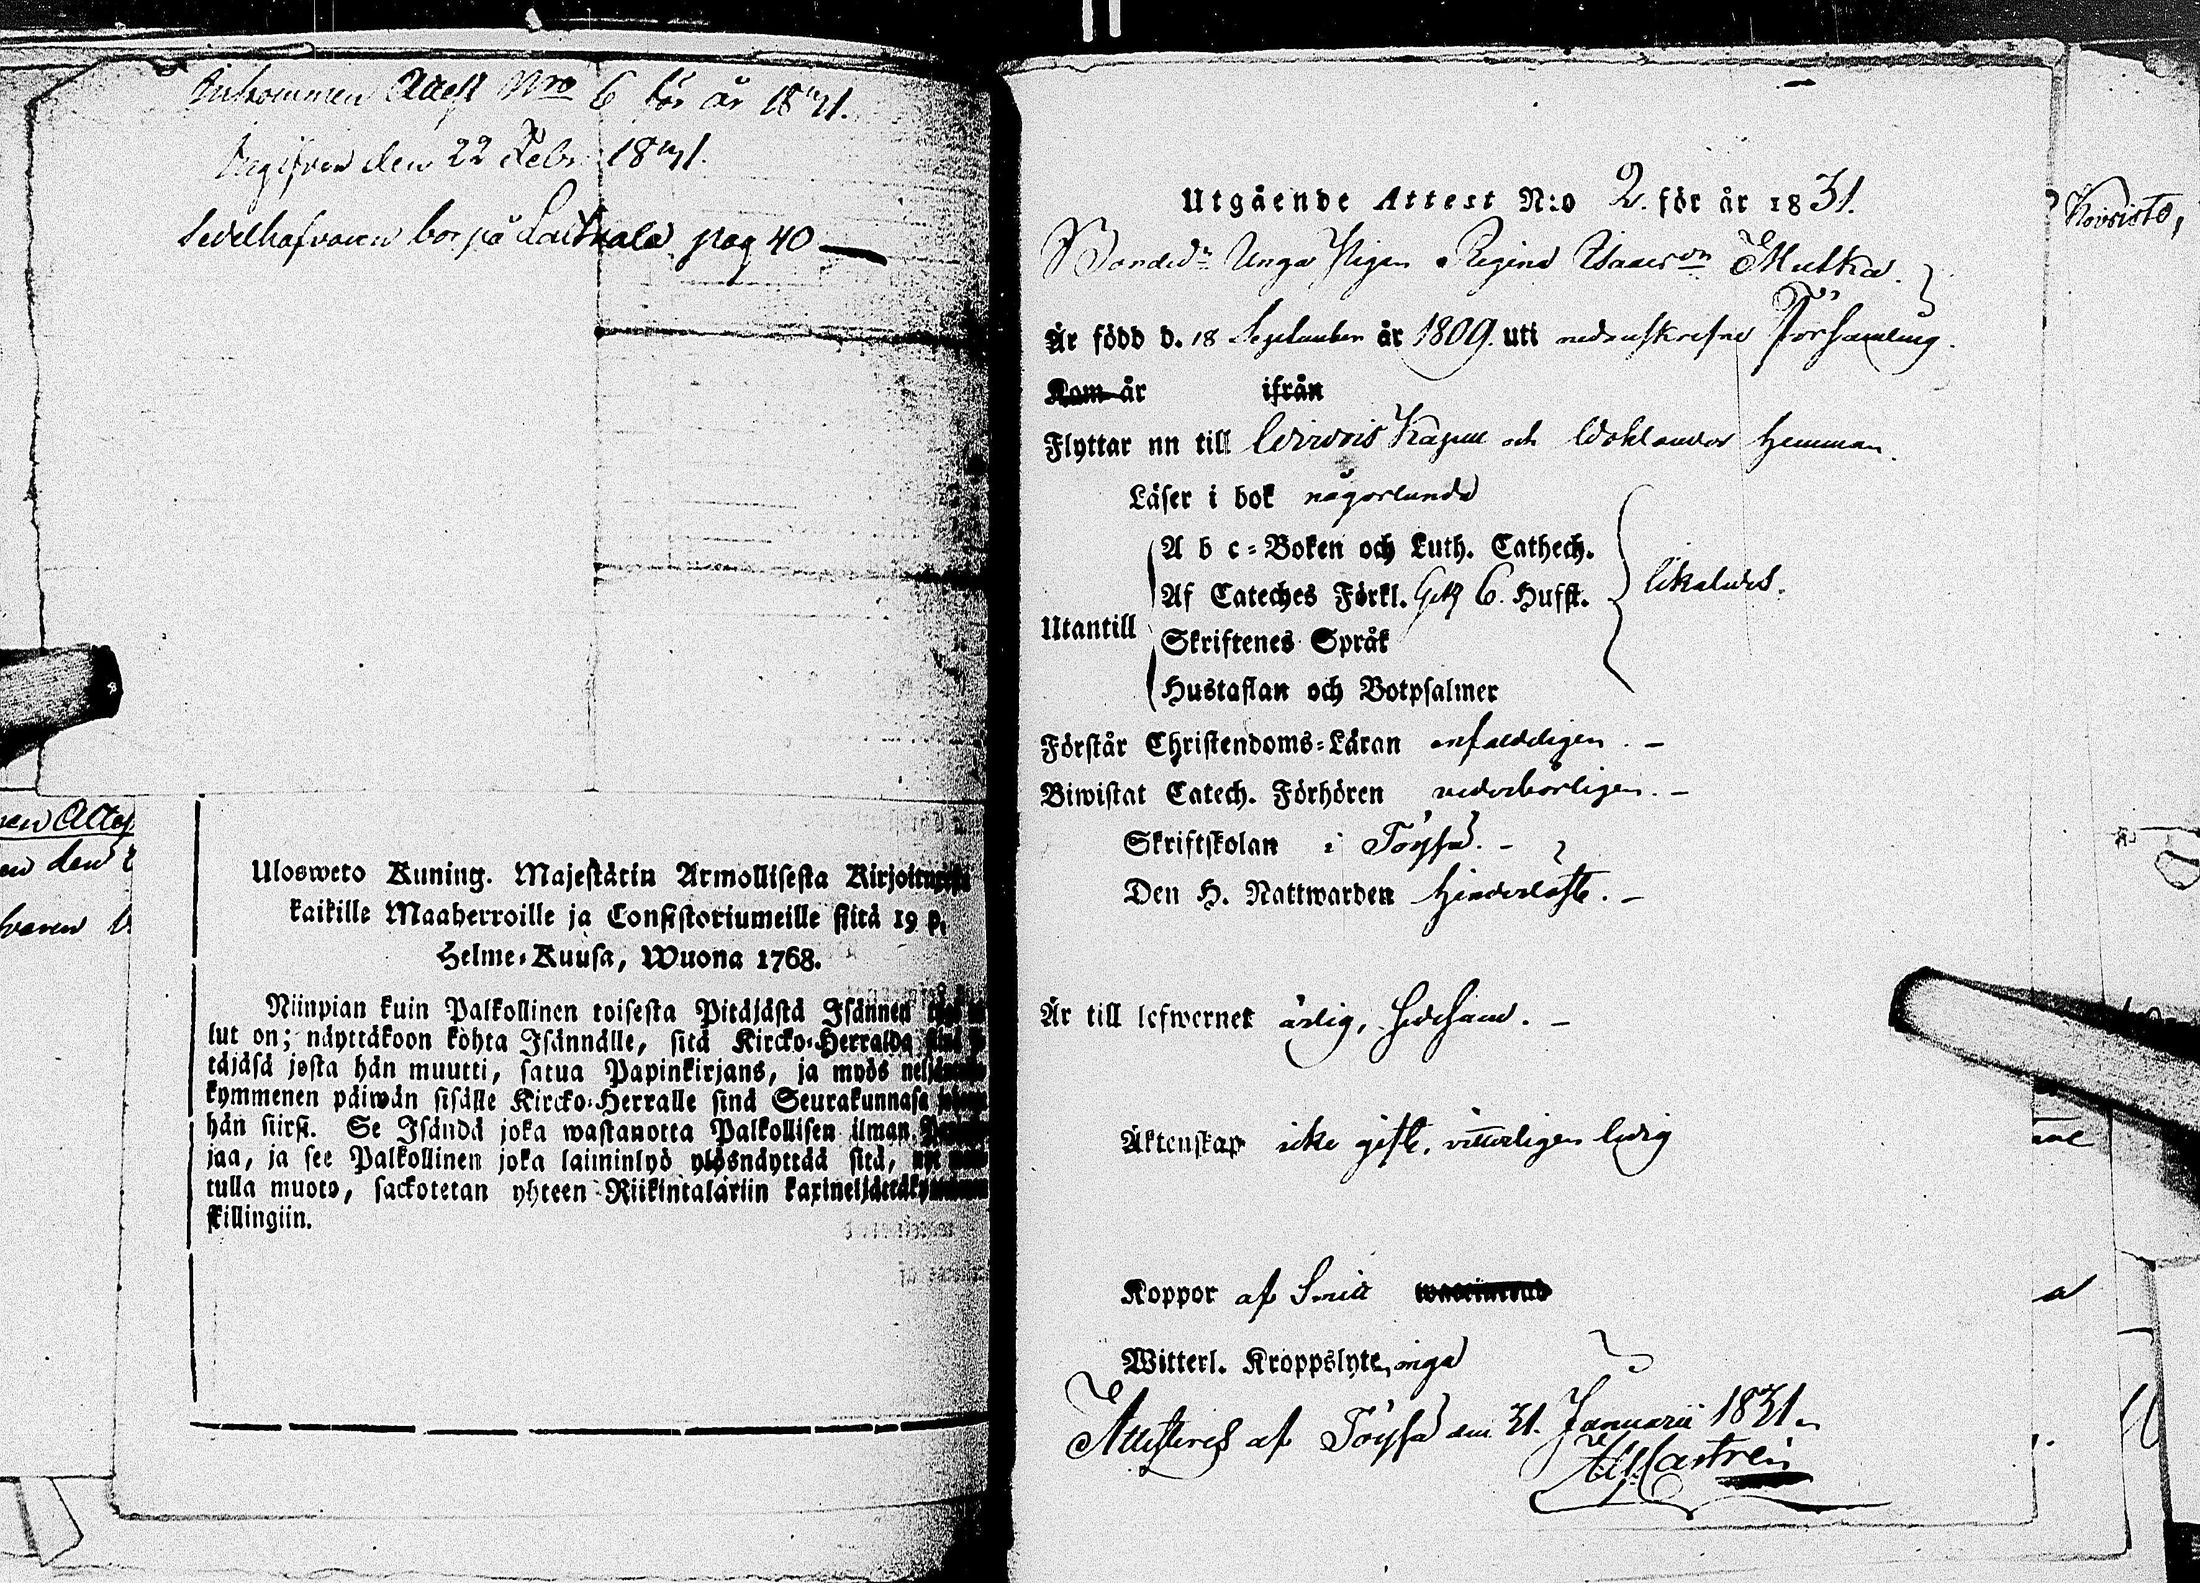 Inkommen Attest Nro 6 för år 1831.
Uppgifven den 22 Febr 1831.
Sedelhafvaren bor på pag 40
Ulosweto Kuning. Majestätin Armollisesta Kirjoituxesta
kaikille Maaherroille ja Consistoriumeille siitä 19 p.
Helme-Kuusa, Wuona 1768.
Niinpian kuin Palkollinen toisesta Pitäjästä Isännen
lut on; näyttäkoon kohta Isännälle, sitä Kircko-Herralda
täjäsä josta hän muutti, satua Papinkirjans, ja myös
kymmenen päiwän sisälle Kircko-Herralle sinä Seurakunnasa
hän siirsi. Se Isändä joka wastanotta Palkollisen ilman
jaa, ja see Palkollinen joka laiminlyö ylösnäyttää sitä,
tulla muoto, sackotetan yhteen Riikintaläriin
skillingiin.
Utgående Attest N:o 2. för år 1831.
Bonded:n Unga Pigan Regina Isaacsdn Mutka.
Är född d. 18 September år 1809. uti nedanskrefne Församling.
Kom år ifrån
Flyttar nu till Wirdois Kapell och hemman.
Läser i bok någorlunda
A b c-Boken och Luth. Cathech.
Af Cateches Förkl. 6. Hufst.
likaledes.
Utantill
Skriftenes Språk
Hustaflan och Botpsalmer
Förstår Christendoms-Läran enfaldeligen. –
Biwistat Catech. Förhören vederbörligen. –
Skriftskolan i Töysä. –
Den H. Nattwarden hinderlöst. –
Är till lefwernet ärlig, sedesam. –
Äktenskap icke gift, vitterligen ledig
Koppor af Smitt
Witterl. Kroppslyte, inga
Attesteras af Töysä den 31. Januarii 1831.
Castrén
Koivisto,